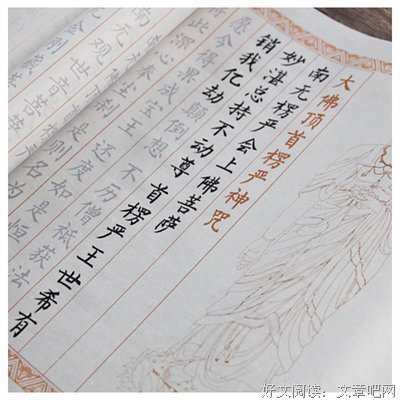 大佛顶首楞严神咒
南无楞严会上佛菩萨
妙湛总持不动尊 首楞严王世希有
销我亿劫颠倒想 不历僧祇获法
愿今得果成宝王 还度如是恒
此深心奉尘刹 是则名为
南无观世音菩萨
金刚藏菩
好文阅读：文章吧网